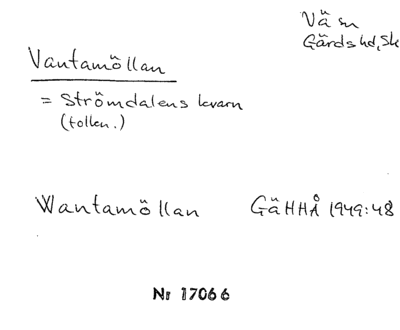 Vä sn
Gärds hd, Sk
Vantamöllan
= Strömdalens kvarn
(tollen.)
Wantamöllan GäHHÅ 1949:48
Nr 17066